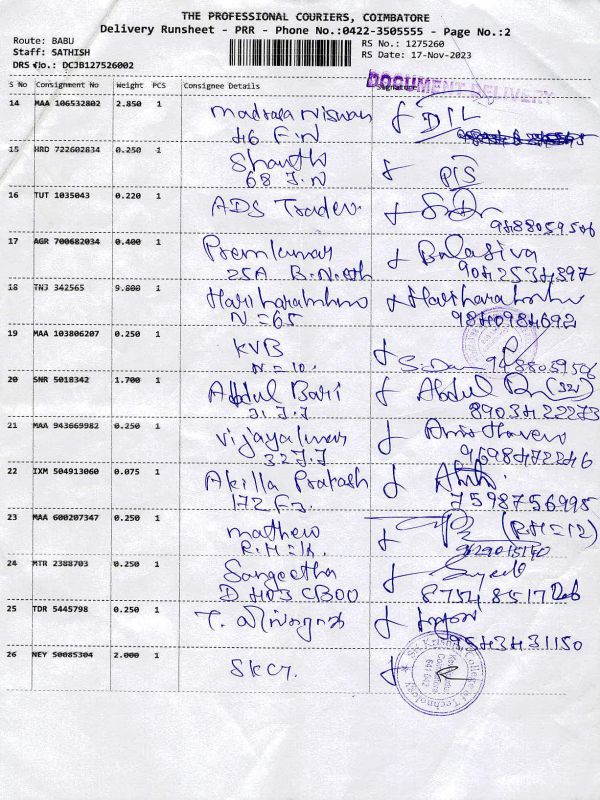 THE PROFESSIONAL COURIERS, COIMBATORE
Delivery Runsheet - PRR - Phone No.:0422-3505555 - Page No.:2
Route: BABU
RS No.: 1275260
Staff: SATHISH
RS Date: 17-Nov-2023
DRS No.: DCJB127526002
DOCUMENT DELIVERY
S No Consignment No Weight PCS Consignee Details Signature
14 MAA 106532802 2.850 1
46 F.N
15 HRD 722602834 0.250 1 Shanthi
68 J.N
16 TUT 1035043 0.220 1 ADS Traders
9488059506
17 AGR 700682034 0.400 1 Premkumar Balasiva
25A 9042534397
18 TNJ 342565 9.800 1
N=65 9840984692
19 MAA 103806207 0.250 1 KVB
N=10. 9488059506
20 SNR 5018342 1.700 1 Abdul Bari Abdul
31.J.J 8903422273
21 MAA 943669982 0.250 1 Vijayakumar
32J.J 9698472246
22 IXM 504913060 0.075 1 Akilla Prakash
172 7598756995
23 MAA 600207347 0.250 1 mathew (R.H=12)
24 MTR 2388703 0.250 1 Sangeetha
D 403 CBOO
25 TDR 5445798 0.250 1 T.
9543431150
26 NEY 50085304 2.000 1 SKCT.
Sri Krishna College of Technology
Coimbatore
641 042